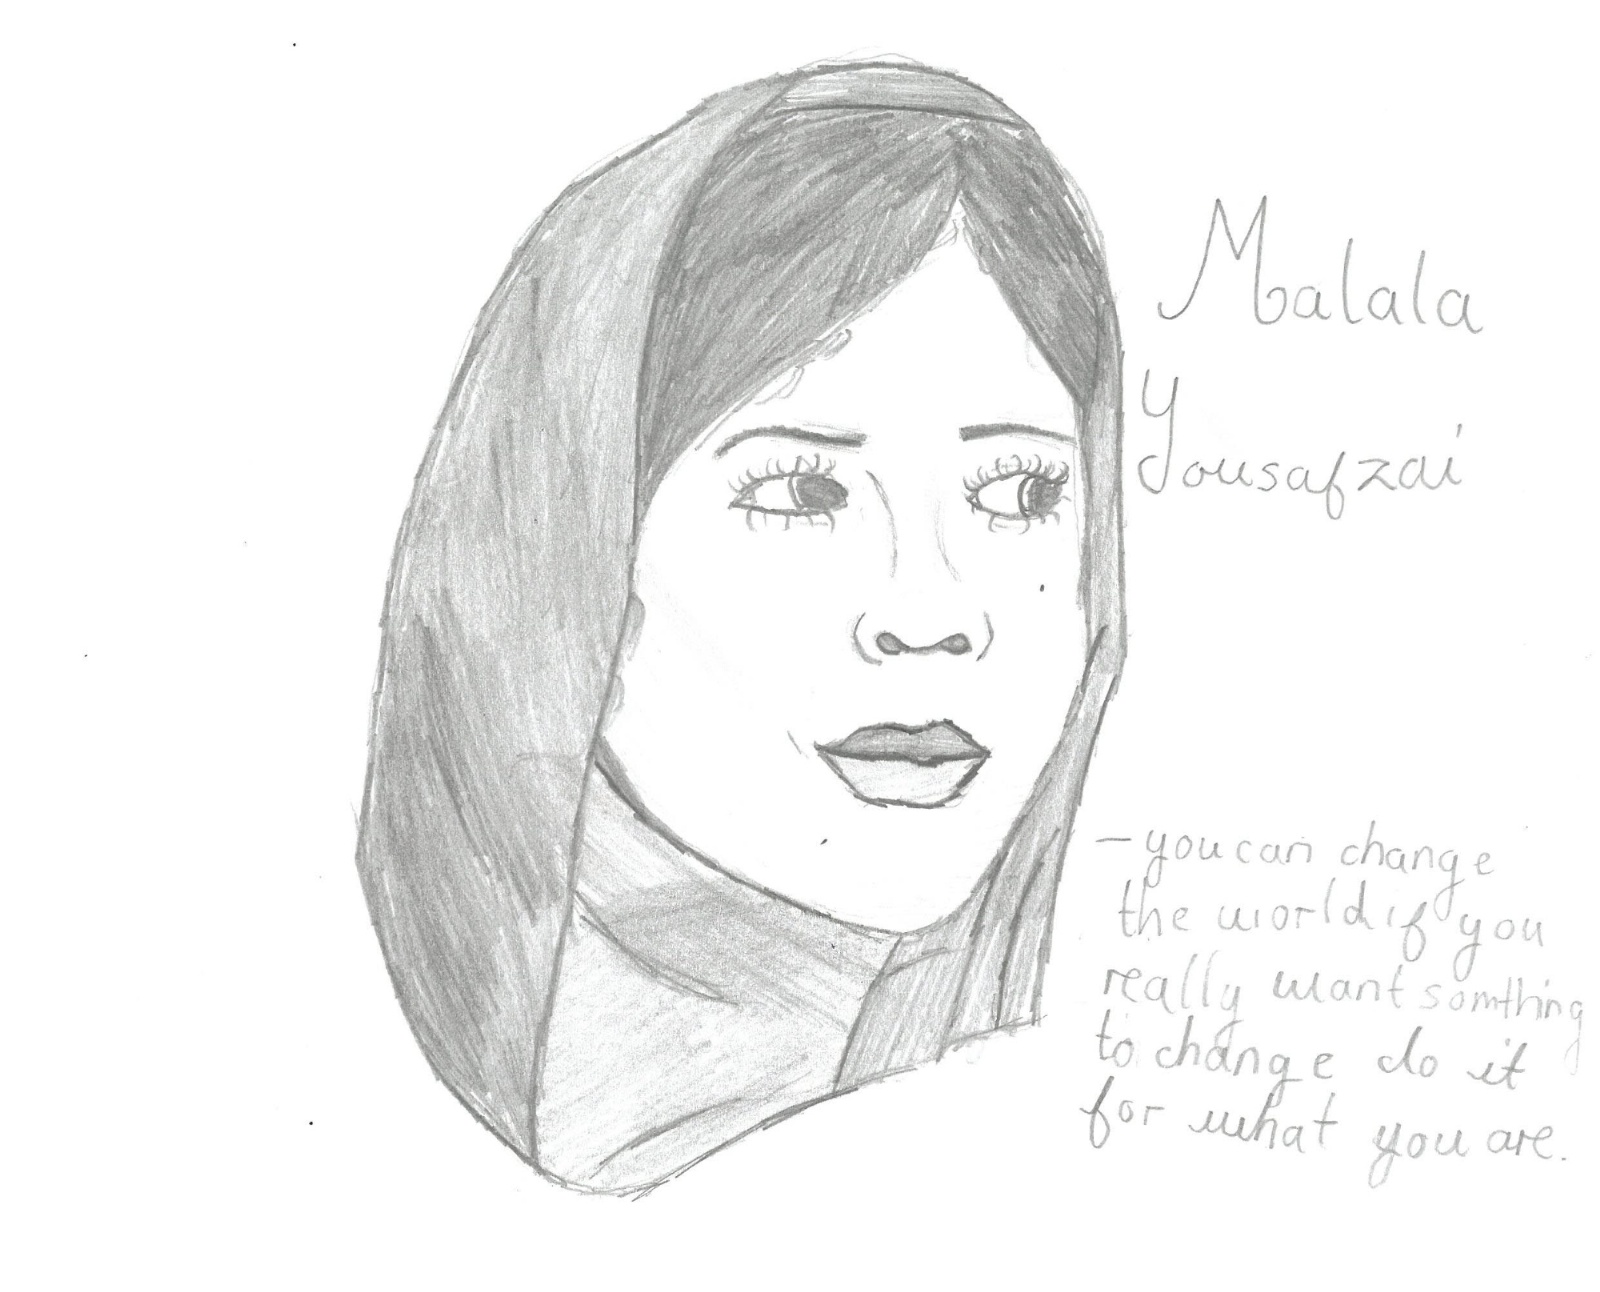 Malala
Yousafzai
- you can change
the world if you
really want somthing
to change do it
for what you are.